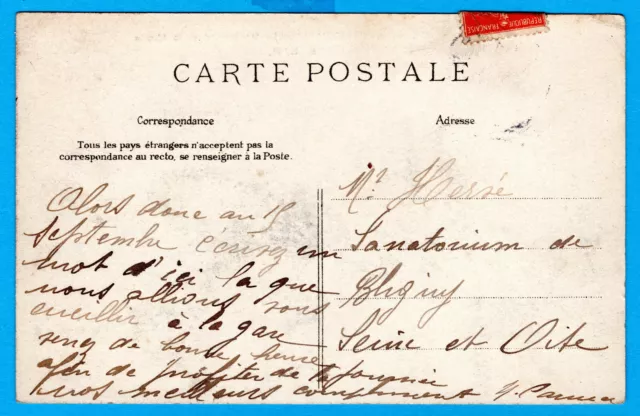 REPUBLIQUE FRANÇAISE
CARTE POSTALE
Correspondance
Adresse
Tous les pays étrangers n'acceptent pas la
correspondance au recto, se renseigner à la Poste.
Alors donc au 15
septembre écrivez un
mot d'ici la que
nous allions vous
cueillir à la gare
venez de bonne heure
afin de profiter de la journée
nos meilleurs compliment
Mr Hervé
Sanatorium de
Bligny
Seine et Oise